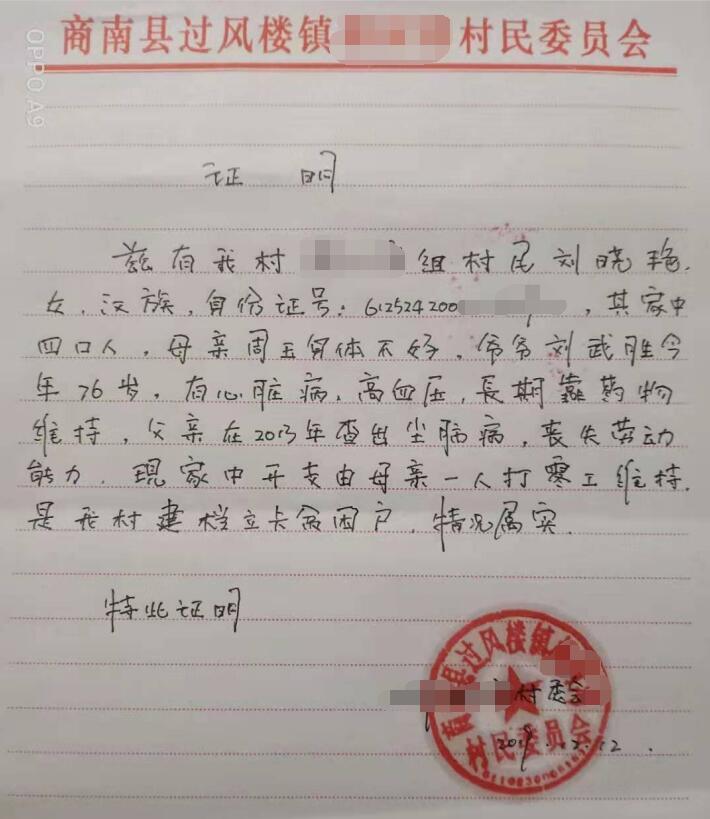 OPPO A9
商南县过风楼镇 村民委员会
证 明
兹有我村 组村民刘晓艳,
女,汉族,身份证号:612524200 ,其家中
四口人,母亲周玉身体不好,爷爷刘武胜今
年76岁,有心脏病,高血压,長期靠药物
维持,父亲在2013年查出尘肺病,丧失劳动
能力.现家中开支由母亲一人打零工维持.
是我村建档立卡贫困户,情况属实.
特此证明
村委会
商南县过风楼镇
村民委员会